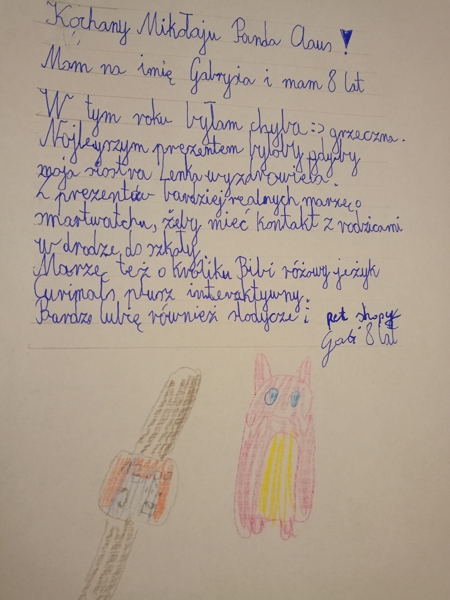 Kochany Mikołaju Panda Claus !
Mam na imię Gabrysia i mam 8 lat
W tym roku byłam chyba :) grzeczna.
Najlepszym prezentem byłoby gdyby
moja siostra Lenka wyzdrowiała.
Z prezentów bardziej realnych marzę o
smartwatchu, żeby mieć kontakt z rodzicami
w drodze do szkoły.
Marzę też o króliku Bibi różowy jeżyk
Curimals plusz interaktywny.
Bardzo lubię również słodycze i pet shopy
Gabi 8 lat